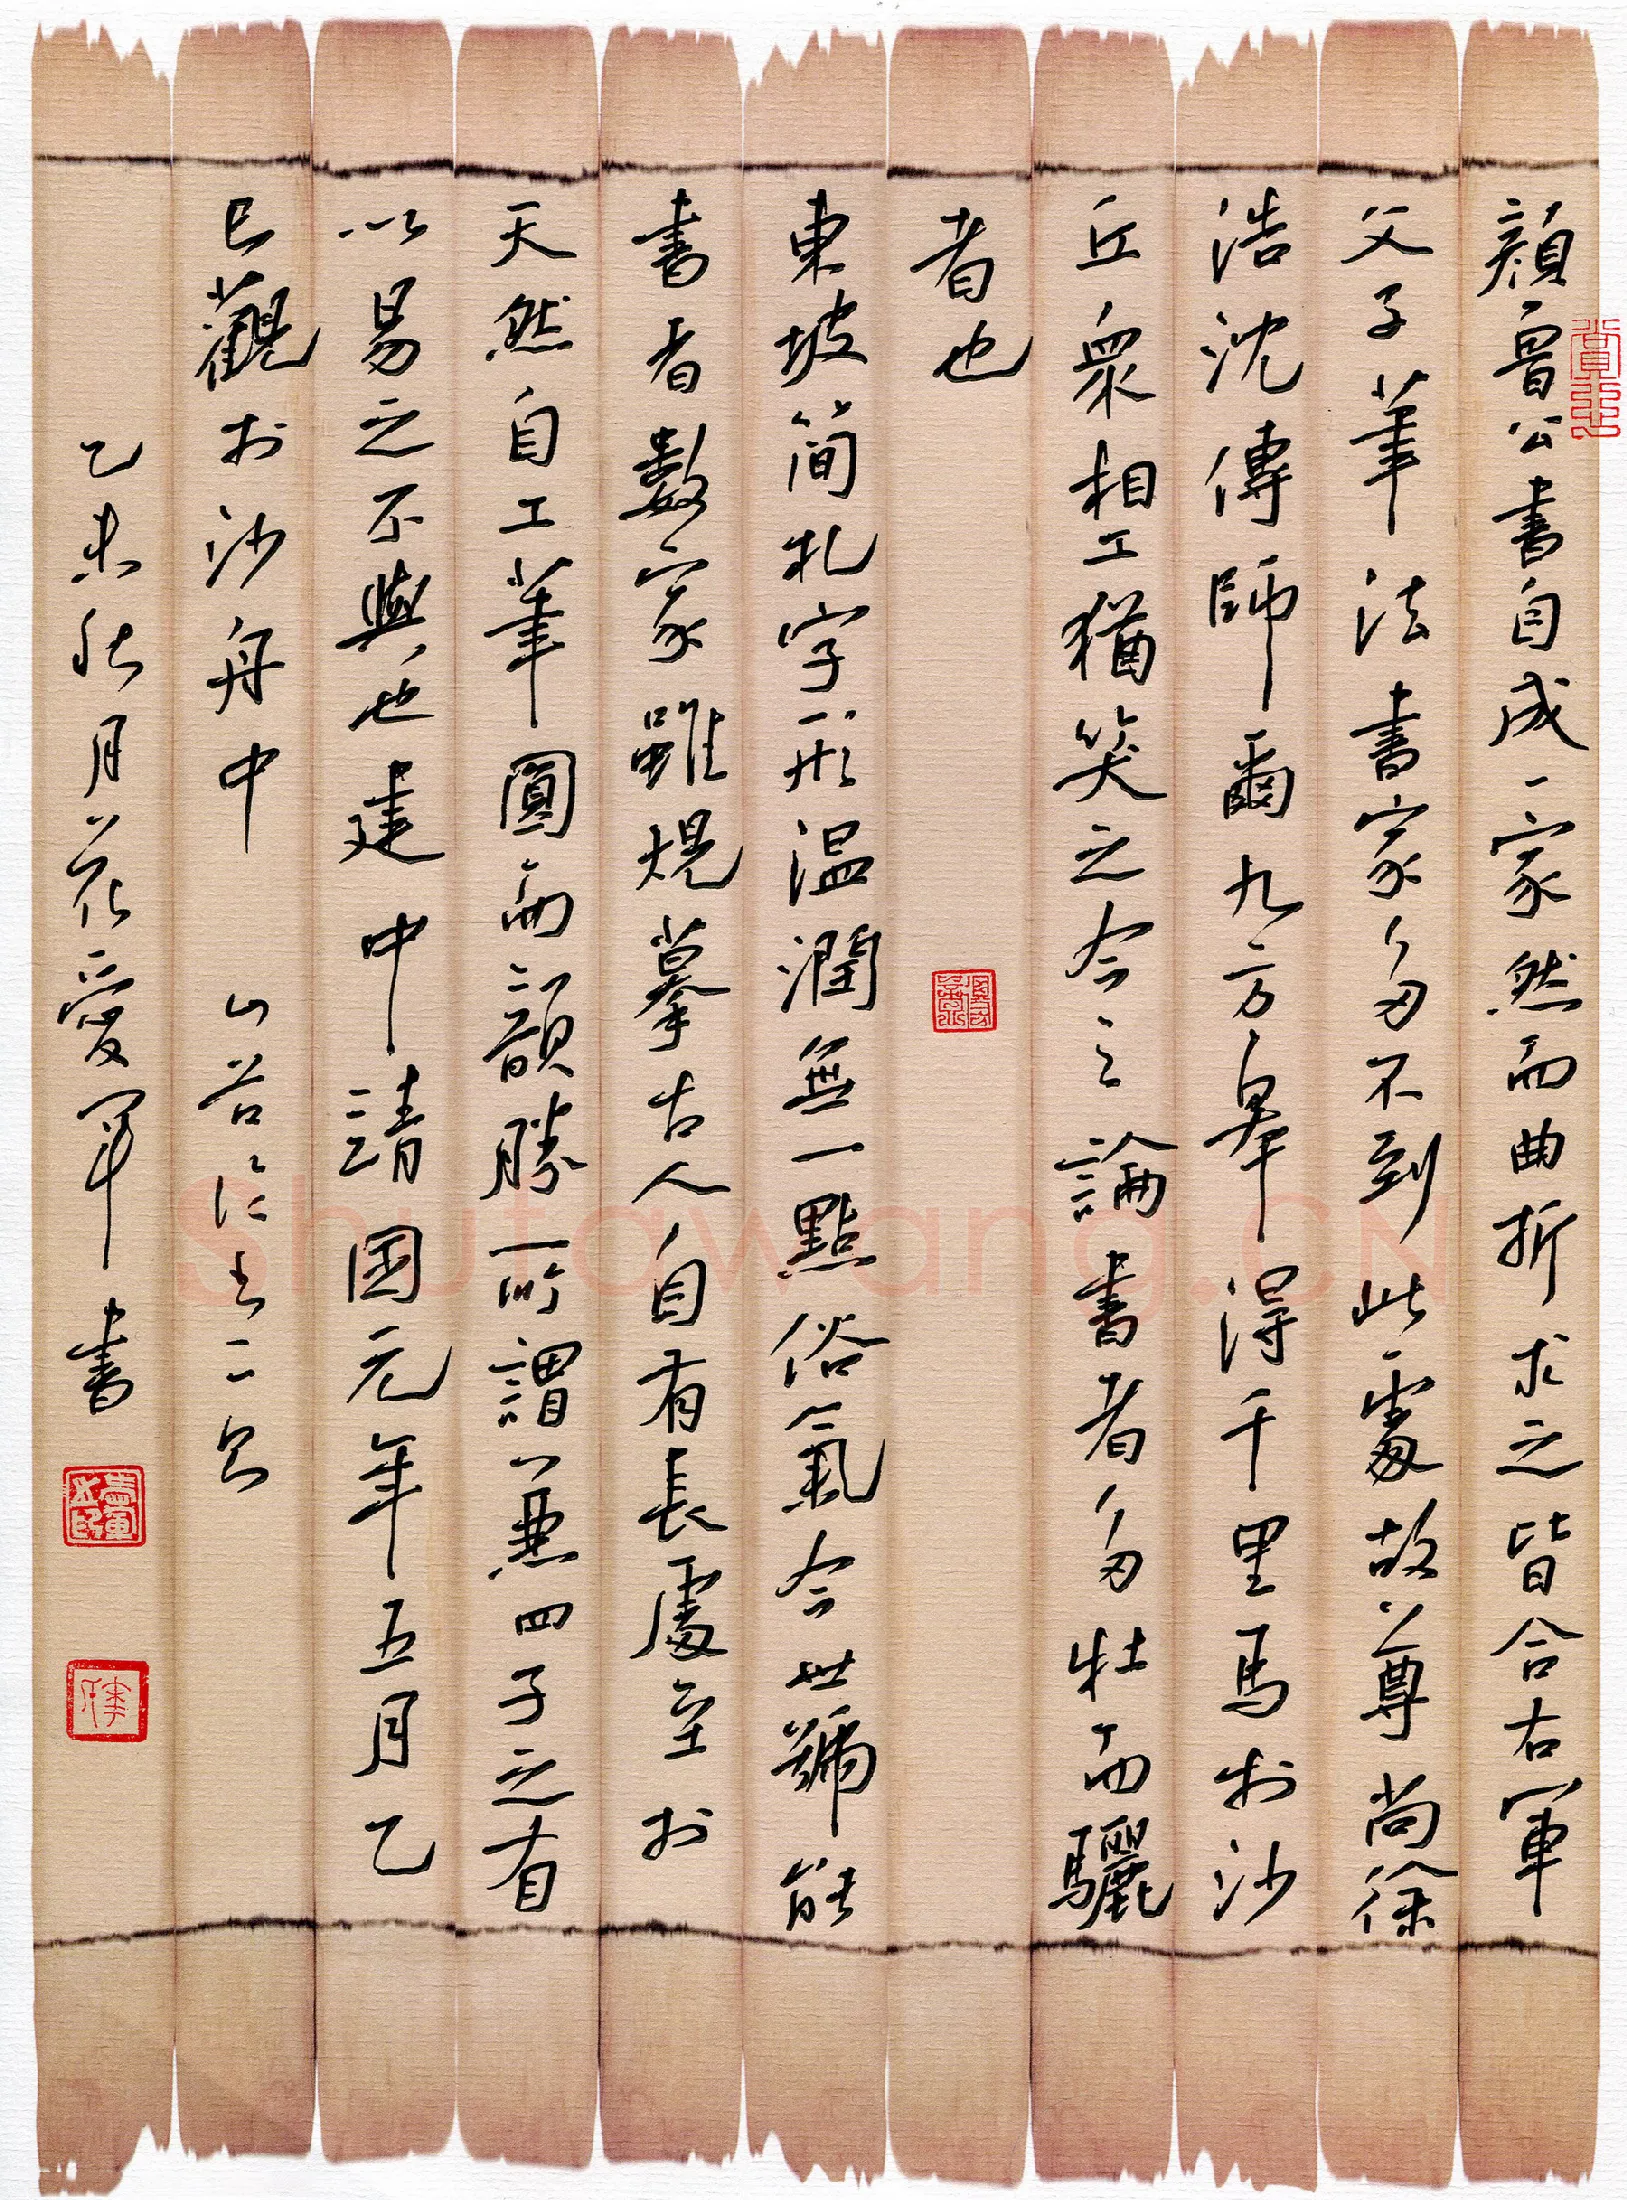 顏魯公書自成一家然而曲折求之皆合右軍
父子筆法書家多不到此處故尊尚徐
浩沈傳師爾九方皋得千里馬於沙
丘衆相工猶笑之今之論書者多牡而驪
者也
東坡简札字形温潤無一點俗氣今世號能
書者數家雖規摹古人自有長處至於
天然自工筆圓而韻勝所謂兼四子之有
以易之不與也建中靖国元年五月乙
巳觀於沙舟中 山谷論書二則
乙未秋月花愛軍書
Shufawang.CN